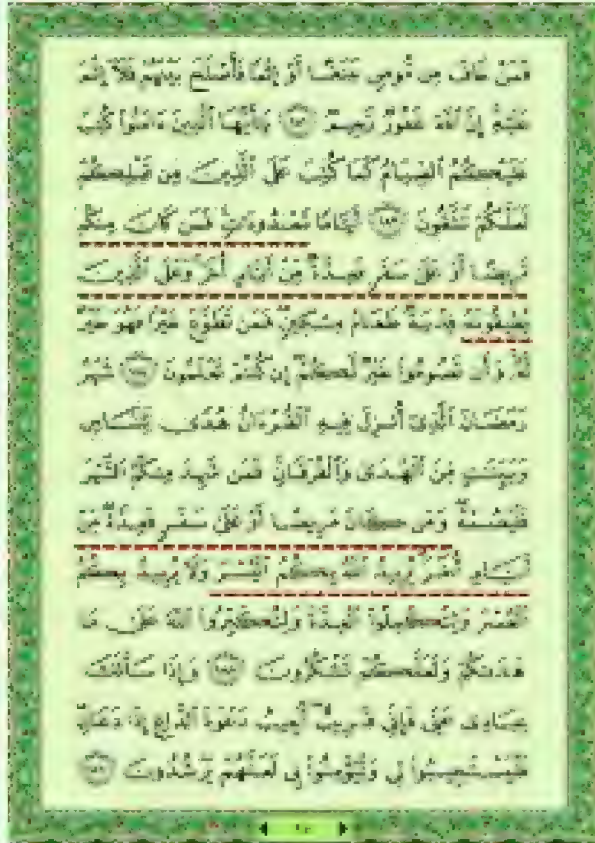 فَمَنْ خَافَ مِن مُّوصٍ جَنَفًا أَوْ إِثْمًا فَأَصْلَحَ بَيْنَهُمْ فَلَا إِثْمَ
عَلَيْهِ إِنَّ اللَّهَ غَفُورٌ رَّحِيمٌ ﴿١٨٢﴾ يَا أَيُّهَا الَّذِينَ ءَامَنُوا كُتِبَ
عَلَيْكُمُ الصِّيَامُ كَمَا كُتِبَ عَلَى الَّذِينَ مِن قَبْلِكُمْ
لَعَلَّكُمْ تَتَّقُونَ ﴿١٨٣﴾ أَيَّامًا مَّعْدُودَاتٍ فَمَن كَانَ مِنكُم
مَّرِيضًا أَوْ عَلَى سَفَرٍ فَعِدَّةٌ مِّنْ أَيَّامٍ أُخَرَ وَعَلَى الَّذِينَ
يُطِيقُونَهُ فِدْيَةٌ طَعَامُ مِسْكِينٍ فَمَن تَطَوَّعَ خَيْرًا فَهُوَ خَيْرٌ
لَّهُ وَأَن تَصُومُوا خَيْرٌ لَّكُمْ إِن كُنتُمْ تَعْلَمُونَ ﴿١٨٤﴾ شَهْرُ
رَمَضَانَ الَّذِي أُنزِلَ فِيهِ الْقُرْءَانُ هُدًى لِّلنَّاسِ
وَبَيِّنَاتٍ مِّنَ الْهُدَى وَالْفُرْقَانِ فَمَن شَهِدَ مِنكُمُ الشَّهْرَ
فَلْيَصُمْهُ وَمَن كَانَ مَرِيضًا أَوْ عَلَى سَفَرٍ فَعِدَّةٌ مِّنْ
أَيَّامٍ أُخَرَ يُرِيدُ اللَّهُ بِكُمُ الْيُسْرَ وَلَا يُرِيدُ بِكُمُ
الْعُسْرَ وَلِتُكْمِلُوا الْعِدَّةَ وَلِتُكَبِّرُوا اللَّهَ عَلَى مَا
هَدَاكُمْ وَلَعَلَّكُمْ تَشْكُرُونَ ﴿١٨٥﴾ وَإِذَا سَأَلَكَ
عِبَادِي عَنِّي فَإِنِّي قَرِيبٌ أُجِيبُ دَعْوَةَ الدَّاعِ إِذَا دَعَانِ
فَلْيَسْتَجِيبُوا لِي وَلْيُؤْمِنُوا بِي لَعَلَّهُمْ يَرْشُدُونَ ﴿١٨٦﴾